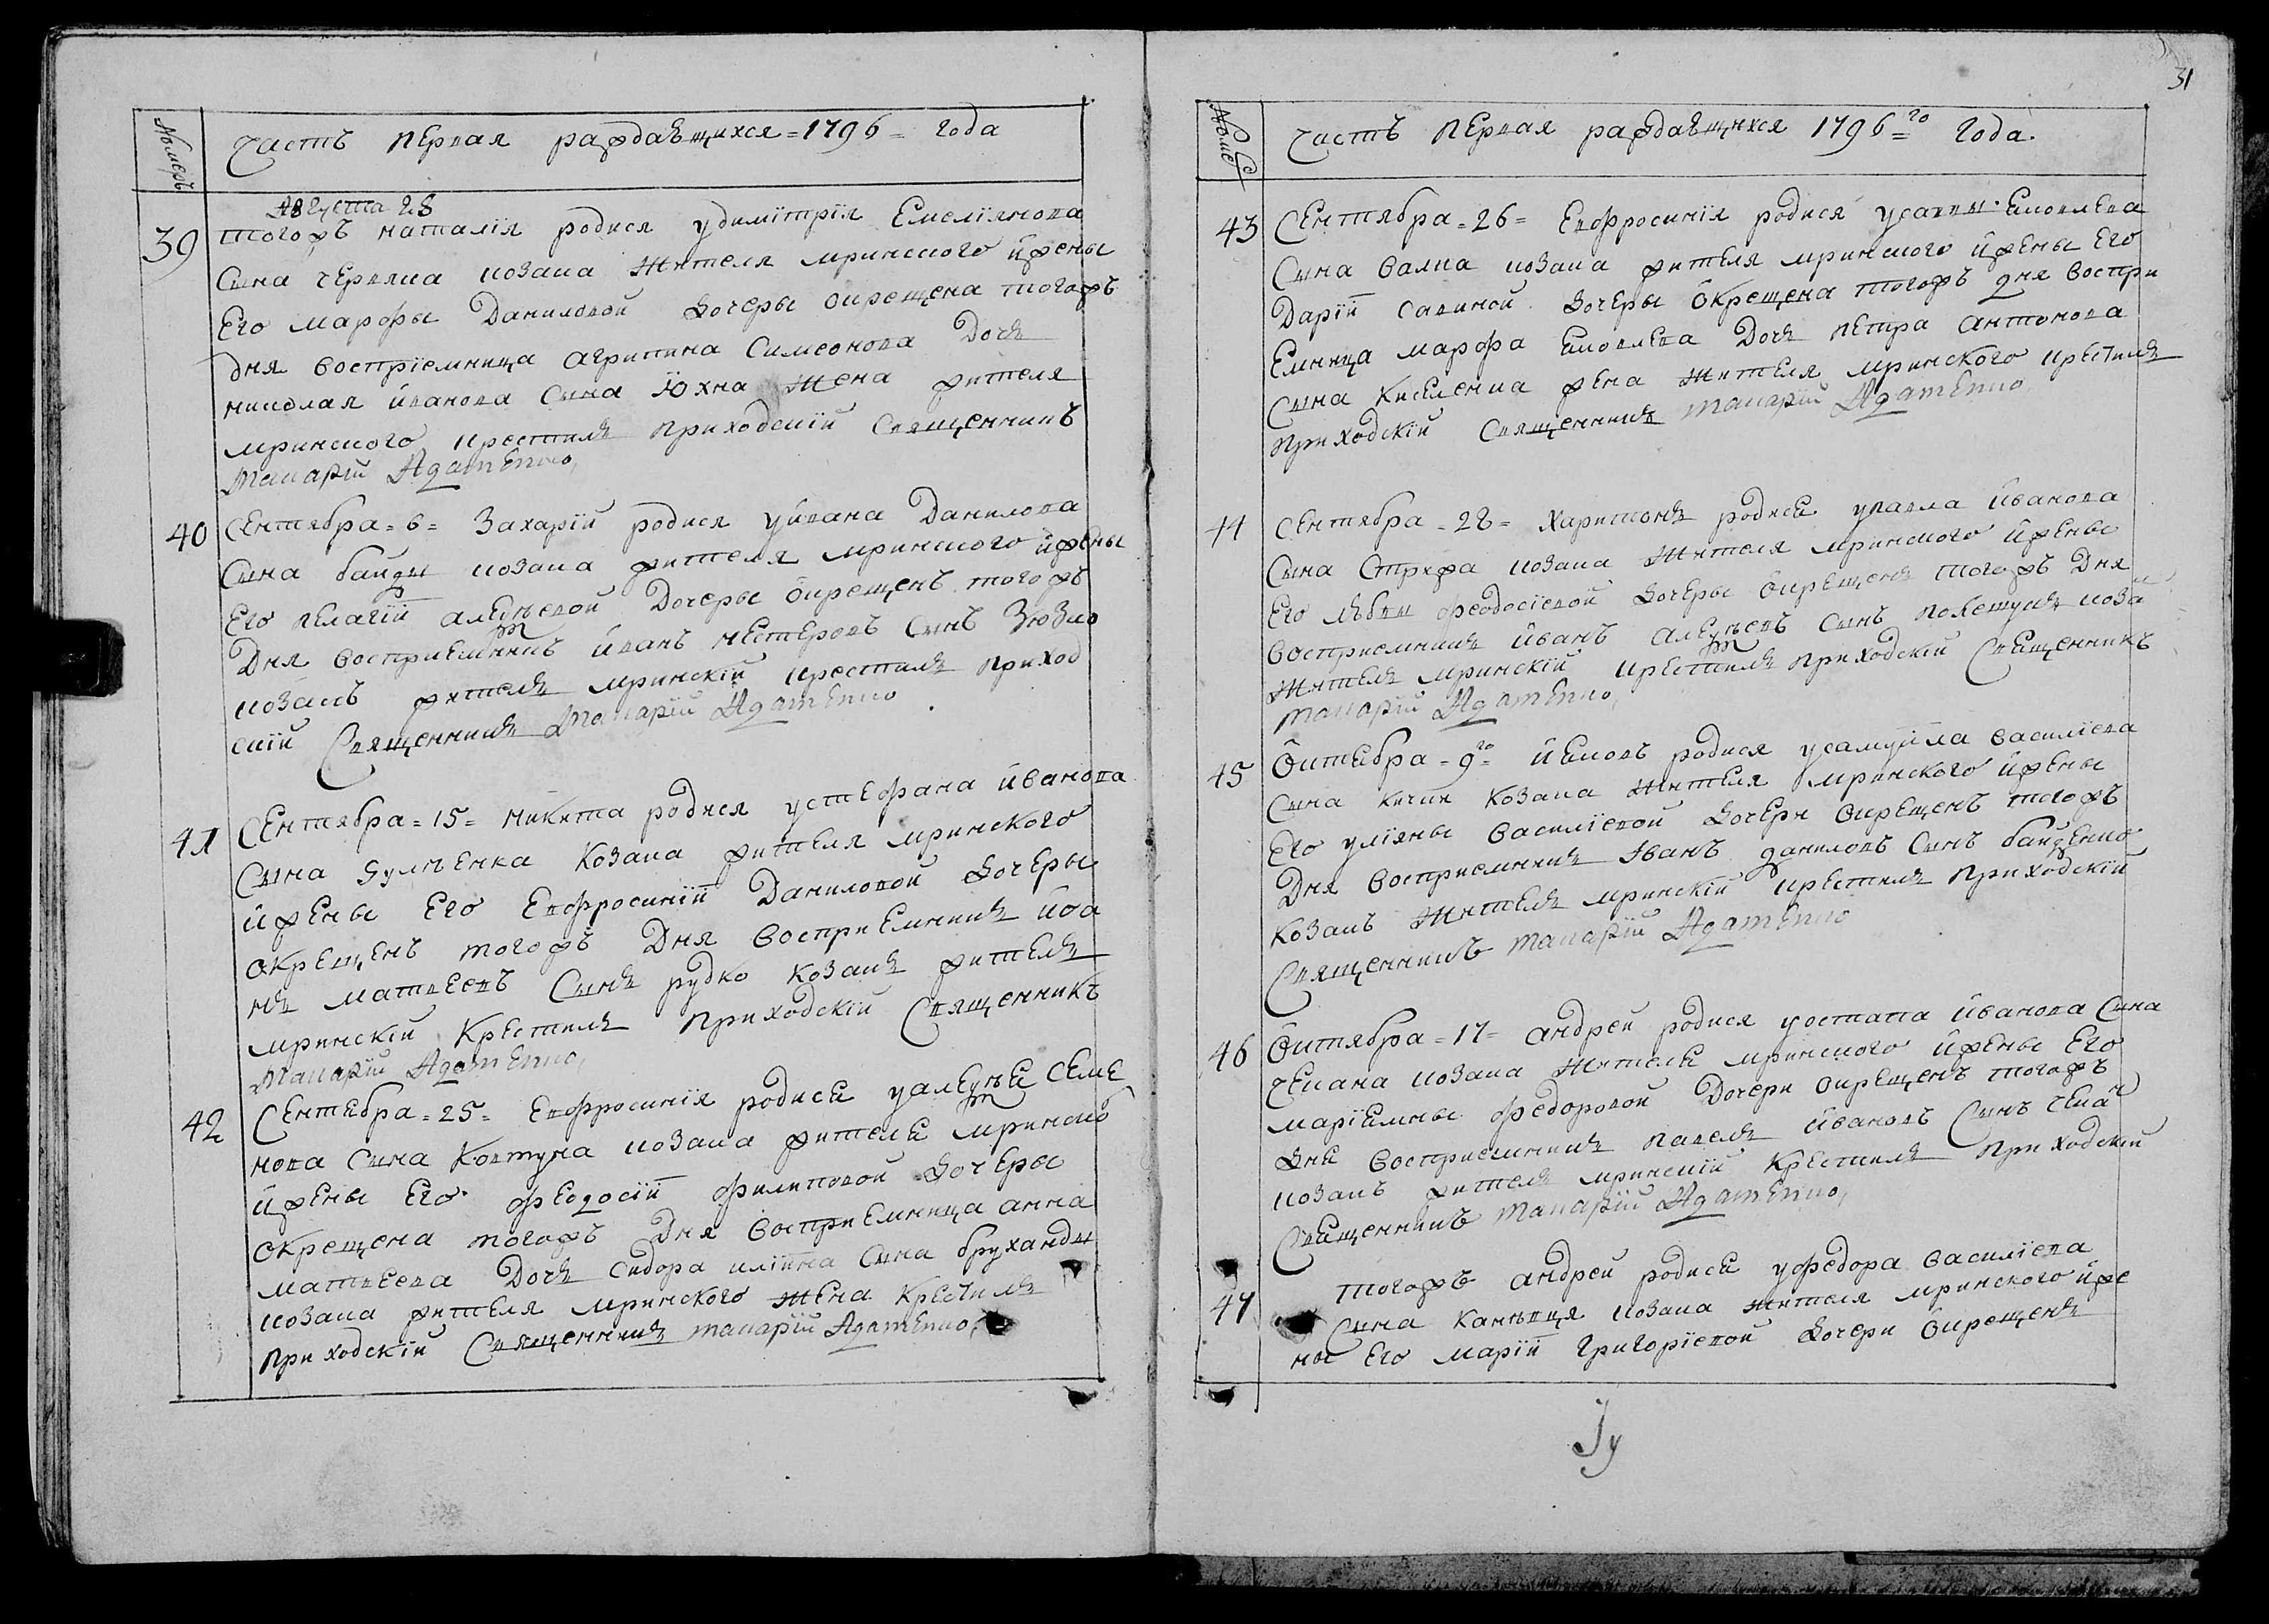 Номеръ
Часть первая раждающихся = 1796 = года
Августа 28
39
тогожъ наталїя родися удимїтрїя Емелїянова
Сына червяка козака жителя мринского йжены
Его марфы Даниловой Дочеры окрещена тогожъ
дня воспрїемница агрипина Симеонова Дочь
николая йванова Сына Юхна жена жителя
мринского крестилъ приходскїй Священникъ
Макарїй Адаменко,
40
Сентября = 6 = Захарїй родися уйвана Данилова
Сына байды козака жителя мринского йжены
Его пелагїй алеѯѣевой Дочеры окрещенъ тогожъ
Дня восприемникъ йванъ нестеровъ Сынъ Зюзко
козакъ жителъ мринскїй крестилъ приход
скїй Священникъ Макарїй Адаменко
41
Сентября = 15 = никита родися устефана йванова
Сына козака жителя мринского
йжены Его Евфросинїй Даниловой Дочеры
окрещенъ тогожъ Дня восприемникъ йоа
нъ матвеевъ Сынъ рудко козакъ жителъ
мринскїй крестилъ приходскїй Священникъ
Макарїй Адаменко,
42
Сентября = 25 = Евфросинїя родися уалеѯѣя Семе
нова Сына Ковтуна козака жителя мринско
йжены Его феодосїй филиповой Дочеры
окрещена тогожъ Дня восприемница анна
матвеева Дочь Сидора илїина Сына бруханды
козака жителя мринского жена крестилъ
приходскїй Священникъ макарїй Адаменко,
31
Номе
Часть первая раждающихся 1796 = го года.
43
Сентября = 26 = Евфросинїя родися усаввы яковлева
Сына валка козака жителя мринского йжены Его
Дарїй савиной Дочеры окрещена тогожъ дня воспри
емница марфа яковлева Дочь петра антонова
Сына Киселенка жена жителя мринского крестилъ
приходскїй Священникъ макарїй Адаменко
44
Сентября = 28 = харитонъ родися упавла йванова
Сына Стрижа козака жителя мринского йжены
Его любвы феодосїевой Дочеры окрещенъ тогожъ Дня
восприемникъ йванъ алеѯѣевъ Сынъ козак
жителъ мринскїй крестилъ приходскїй Священникъ
макарїй Адаменко,
45
Октября = 9 = го йяковъ родися усамуйла василїева
Сына козака жителя мринского йжены
Его улїяны василїевой Дочери окрещенъ тогожъ
Дня восприемникъ йванъ даниловъ Сынъ байденко
козакъ жителъ мринскїй крестилъ приходскїй
Священникъ макарїй Адаменко
46
Октября = 17 = андрей родися уостапа йванова Сына
чекана козака жителя мринского йжены Его
марїямны федоровой Дочери окрещенъ тогожъ
Дня восприемникъ павелъ йвановъ Сынъ чекан
козакъ жителъ мринскїй крестилъ приходскїй
Священникъ макарїй Адаменко,
47
тогожъ андрей родися уфедора василїева
Сына Канѣвця козака жителя мринского йже
ны Его марїй григорїевой Дочери окрещенъ